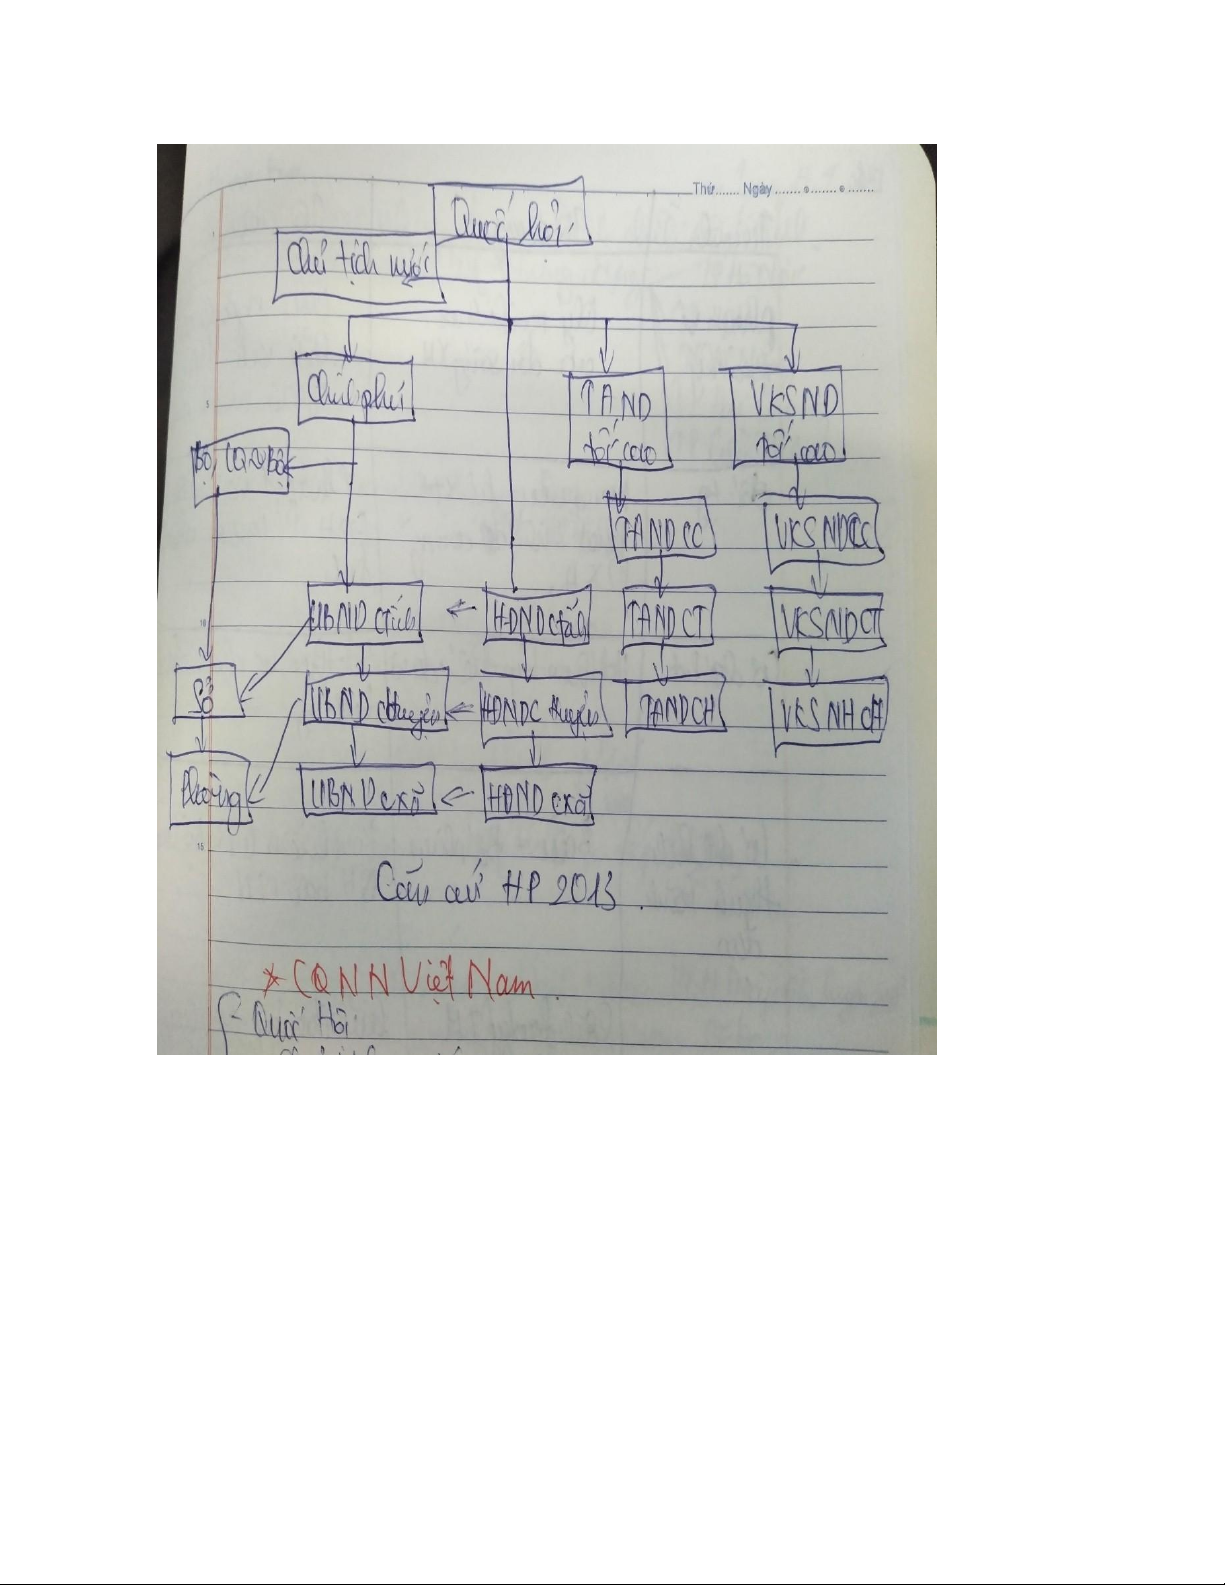 Thứ....... Ngày ....... ● ....... ● .......
Quốc hội
Chủ tịch nước
Chính phủ
TAND
tối cao
VKSND
tối cao
Bộ, CQNBộ
5
TANDCC
VKSNDCC
UBND ctỉnh
HĐND
TANDCT
VKSNDCT
10
Sở
UBND cHuyện
HĐNDC Huyện
TANDCH
VKSNH cH
Phòng
UBND cxã
HĐND cxã
15
Căn cứ HP 2013.
* CQNN Việt Nam.
- Quốc Hội